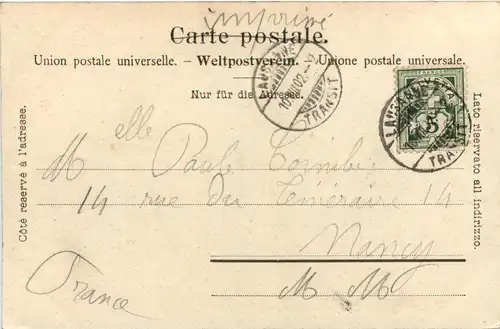 imprimé
Carte postale.
Union postale universelle. – Weltpostverein. – Unione postale universale.
Nur für die Adresse.
LAUSANNE
TRANSIT
5
LAUSANNE
Côté reservé à l'adresse.
Lato riservato all indirizzo.
Melle Paule
14 rue du Téméraire 14
Nancy
M M
France